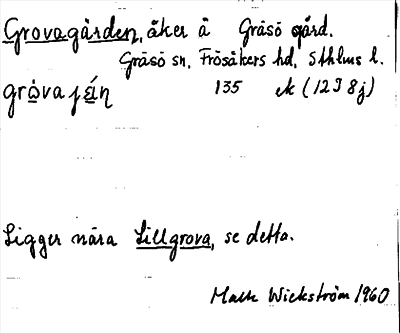 Grovagården, åker å Gräsö gård.
Gräsö sn, Frösåkers hd, Sthlms l.
135 ek (12I 8j)
Ligger nära Lillgrova, se detta.
Wickström 1960